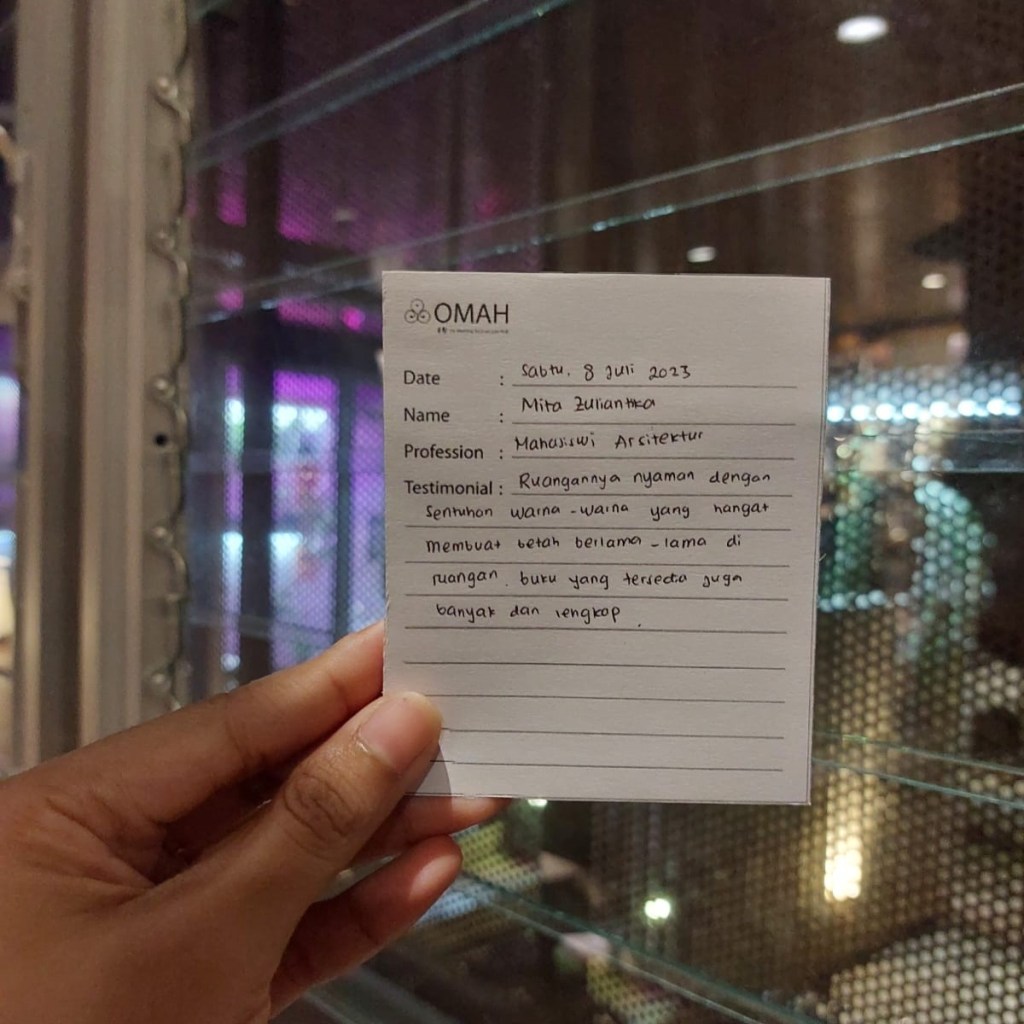 OMAH
Date : Sabtu, 8 Juli 2023
Name : Mita Zuliantika
Profession : Mahasiswi Arsitektur
Testimonial : Ruangannya nyaman dengan
sentuhan warna-warna yang hangat
membuat betah berlama-lama di
ruangan. buku yang tersedia juga
banyak dan lengkap.